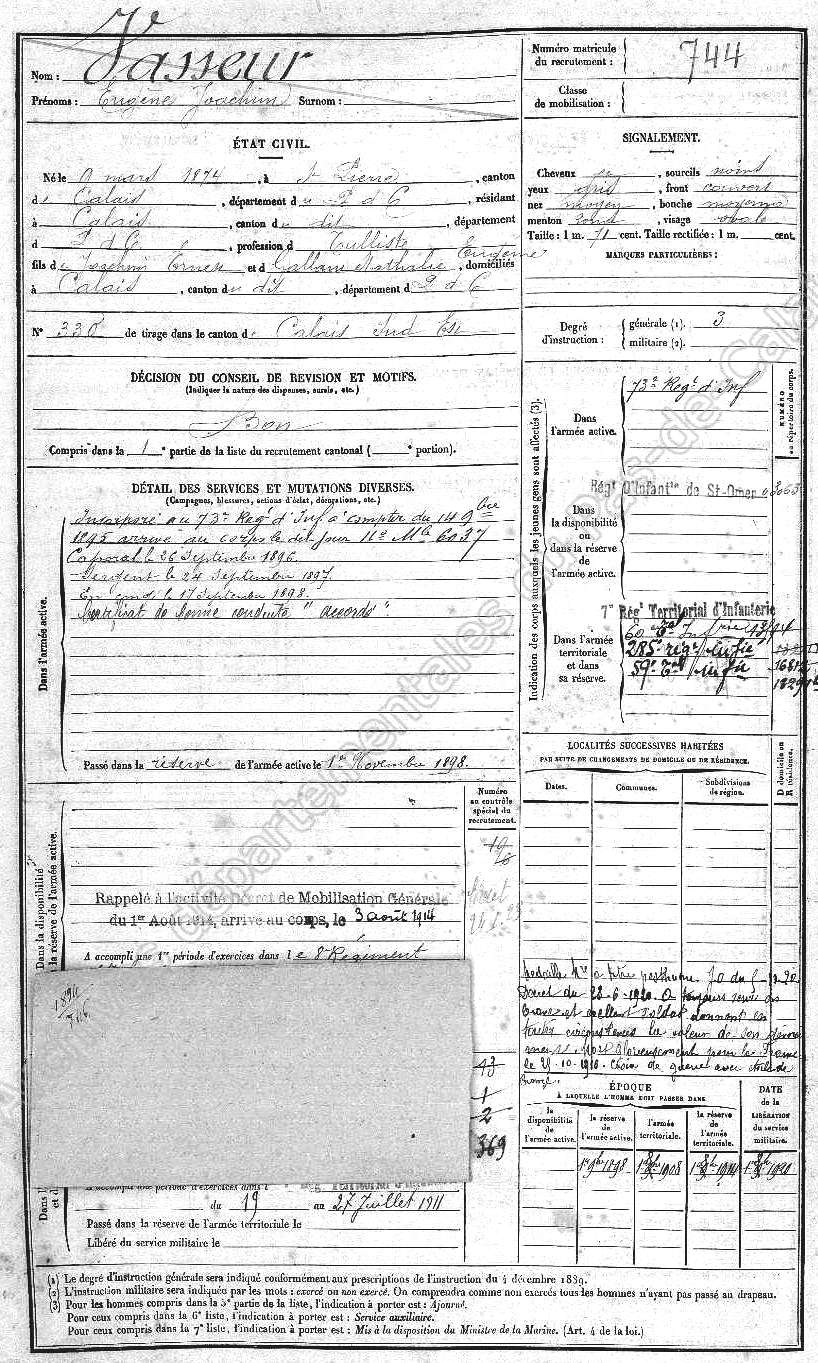 Nom : Vasseur
Prénoms : Eugène Joachim Surnom :
ÉTAT CIVIL.
Né le mars 1874, à St Pierre, canton
de Calais, département du P d C, résidant
à Calais, canton du dit, département
d P d C, profession d Tulliste
fils de Joachim Ernest et d Eugénie, domiciliés
à Calais, canton du dit, département d P d C
N° 330 de tirage dans le canton de Calais Sud Est
DÉCISION DU CONSEIL DE REVISION ET MOTIFS.
(Indiquer la nature des dispenses, sursis, etc.)
Bon
Compris dans la 1e partie de la liste du recrutement cantonal ( e portion).
DÉTAIL DES SERVICES ET MUTATIONS DIVERSES.
(Campagnes, blessures, actions d'éclat, décorations, etc.)
Dans l'armée active.
Incorporé au 73e Regt d'Inf à compter du 14 9bre
1895 arrivé au corps le dit jour no Mle 6037
Caporal le 26 Septembre 1896.
Sergent le 24 Septembre 1897.
En congé le 17 Septembre 1898.
Certificat de bonne conduite "accordé".
Passé dans la réserve de l'armée active le 1er Novembre 1898.
Numéro au contrôle spécial du recrutement.
Dans la disponibilité
la réserve de l'armée active.
Rappelé à l'activité Décret de Mobilisation Générale
du 1er Août 1914, arrivé au corps, le 3 août 1914
A accompli une 1re période d'exercices dans le 8e Régiment
1894
43
1
2
369
A accompli une période d'exercices dans l Territorial d'Infanterie
du 19 au 27 Juillet 1911
Passé dans la réserve de l'armée territoriale le
Libéré du service militaire le
Numéro matricule du recrutement : 744
Classe de mobilisation :
SIGNALEMENT.
Cheveux, sourcils noirs
yeux gris, front couvert
nez moyen, bouche moyenne
menton rond, visage ovale
Taille : 1 m. 71 cent. Taille rectifiée : 1 m. cent.
MARQUES PARTICULIÈRES :
Degré d'instruction : générale (1). 3
militaire (2).
Indication des corps auxquels les jeunes gens sont affectés (3).
NUMÉRO au répertoire du corps.
Dans l'armée active.
73e Regt d'Inf
Dans la disponibilité ou dans la réserve de l'armée active.
Régt d'Infantie de St-Omer 03063
Dans l'armée territoriale et dans sa réserve.
7e Régt Territorial d'Infanterie
60e Inf
285e reg. Infie
59e Tal Infie
LOCALITÉS SUCCESSIVES HABITÉES
PAR SUITE DE CHANGEMENTS DE DOMICILE OU DE RÉSIDENCE.
Dates. Communes. Subdivisions de région. D domicile ou R résidence.
Médaille Mre à titre posthume JO du
Décret du 28-6-1920. A toujours servi en
brave et excellent soldat donnant en
toutes circonstances la valeur de son dévoue
ment. Mort glorieusement pour la France
le 25-10-1916. Croix de guerre avec étoile de
bronze.
ÉPOQUE
À LAQUELLE L'HOMME DOIT PASSER DANS
la disponibilité de l'armée active. la réserve de l'armée active. l'armée territoriale. la réserve de l'armée territoriale.
DATE de la LIBÉRATION du service militaire.
1er 9bre 1898
(1) Le degré d'instruction générale sera indiqué conformément aux prescriptions de l'instruction du 4 décembre 1889.
(2) L'instruction militaire sera indiquée par les mots : exercé ou non exercé. On comprendra comme non exercés tous les hommes n'ayant pas passé au drapeau.
(3) Pour les hommes compris dans la 5e partie de la liste, l'indication à porter est : Ajourné.
Pour ceux compris dans la 6e liste, l'indication à porter est : Service auxiliaire.
Pour ceux compris dans la 7e liste, l'indication à porter est : Mis à la disposition du Ministre de la Marine. (Art. 4 de la loi.)